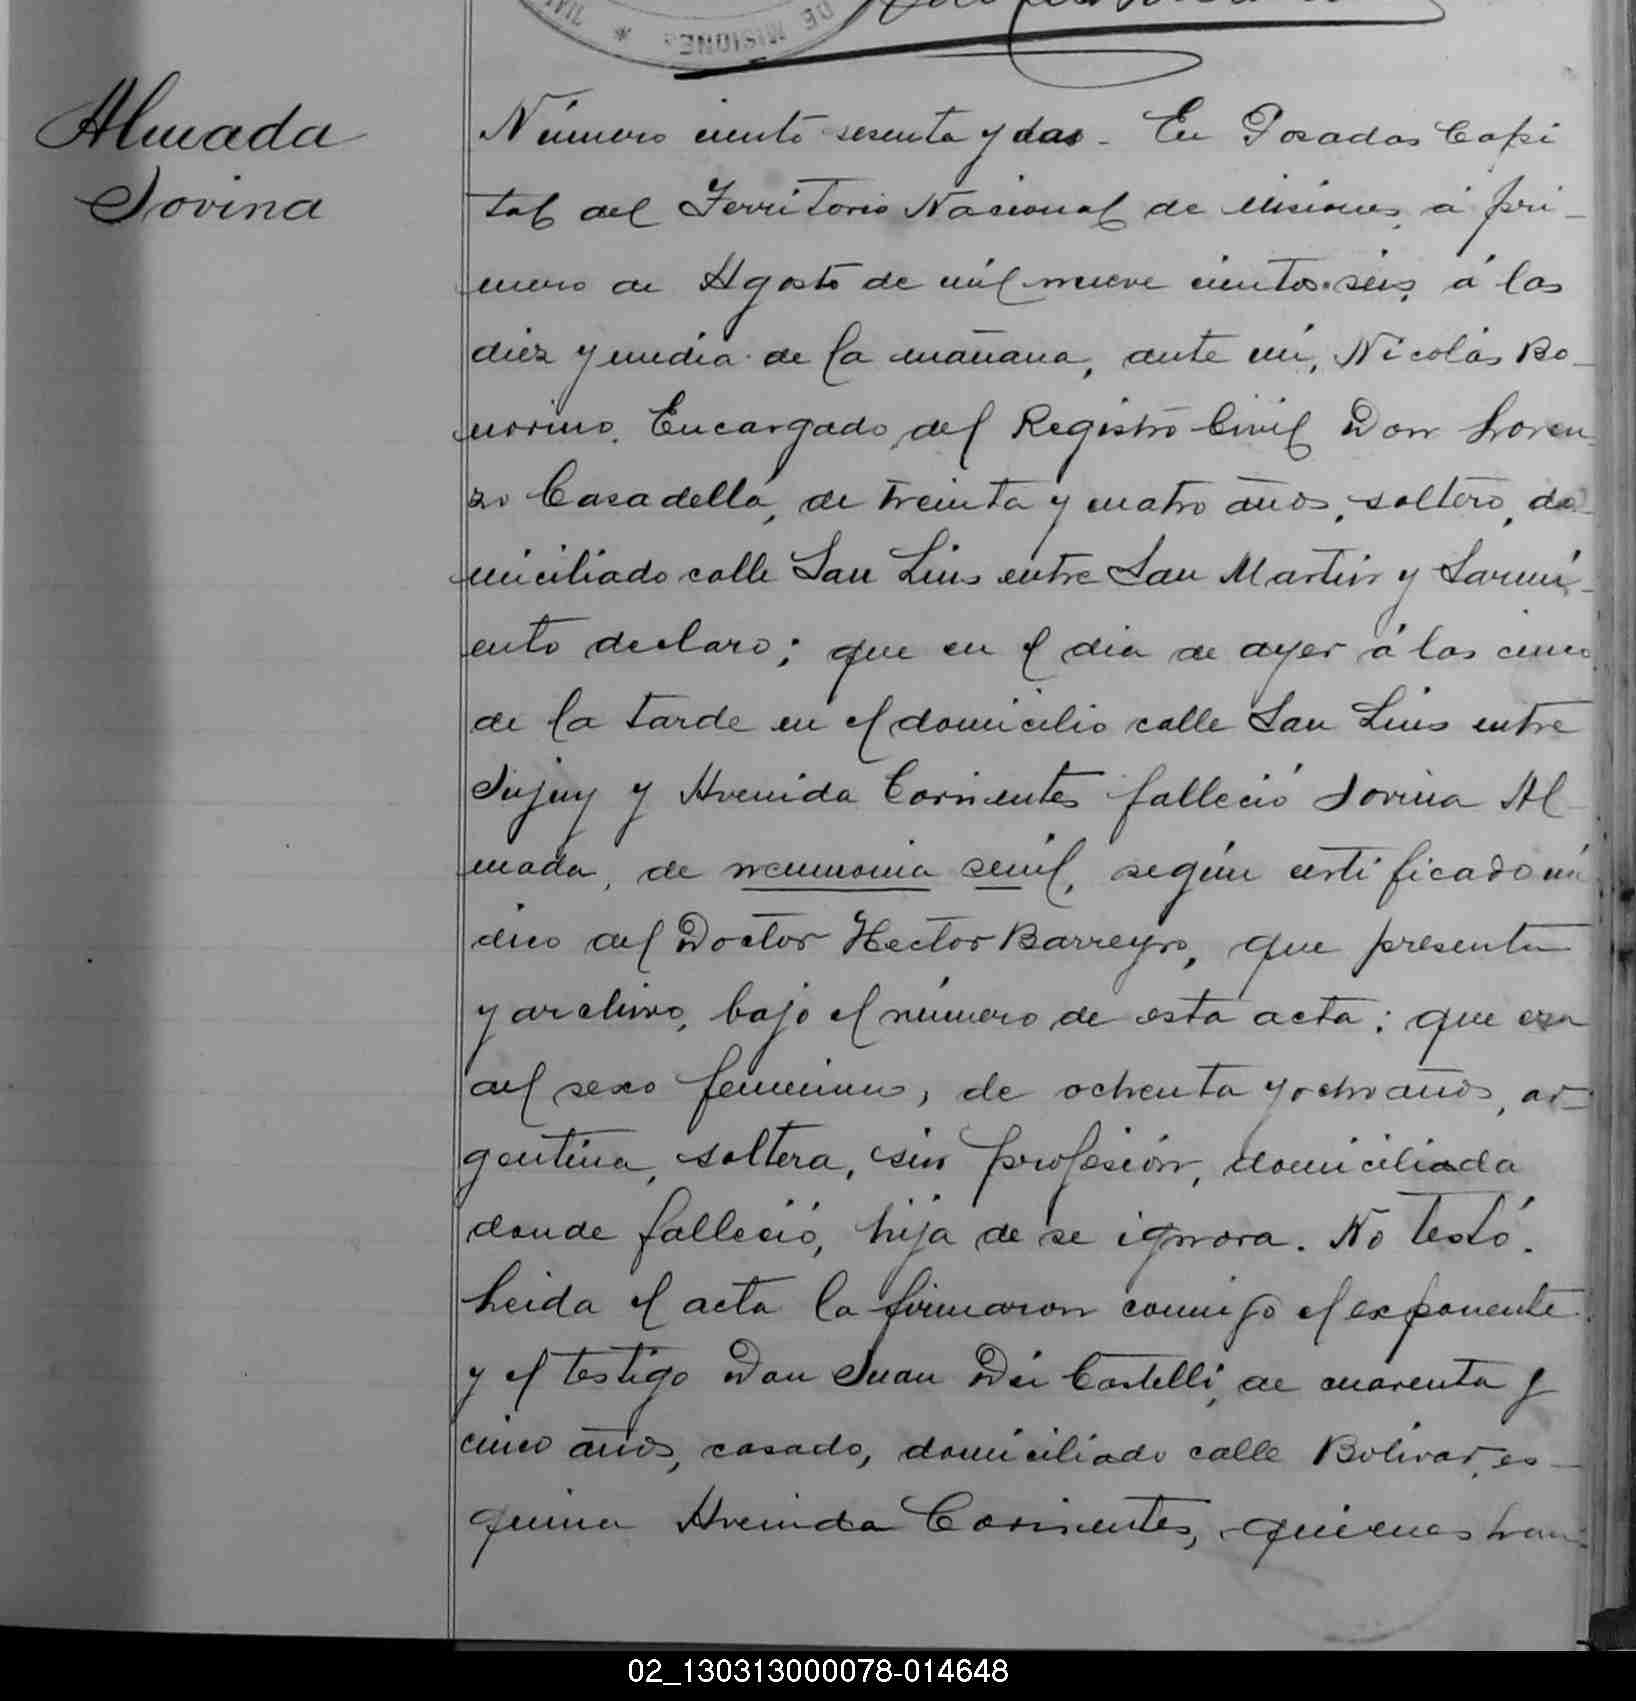 DE MISIONES *
Almada
Jovina
Número ciento sesenta y dos - En Posadas Capi
tal del Territorio Nacional de Misiones, á pri-
mero de Agosto de mil nueve cientos seis, á las
diez y media de la mañana, ante mi, Nicolás Bo-
norino, Encargado del Registro Civil Don Loren
zo Casadella, de treinta y cuatro años, soltero, do-
miciliado calle San Luis entre San Martin y Sarmi-
ento declaro; que en el dia de ayer á las cinco
de la tarde en el domicilio calle San Luis entre
Jujuy y Avenida Corrientes falleció Jovina Al
mada, de neumonia senil, según certificado mé
dico del Doctor Hector Barreyro, que presenta
y archivo, bajo el número de esta acta: que era
del sexo femenino, de ochenta y ocho años, ar-
gentina, soltera, sin profesión, domiciliada
donde falleció, hija de se ignora. No testó.
Leida el acta la firmaron conmigo el exponente
y el testigo Don Juan Dei Castelli, de cuarenta y
cinco años, casado, domiciliado calle Bolivar, es-
quina Avenida Corrientes, quienes han
02_130313000078-014648